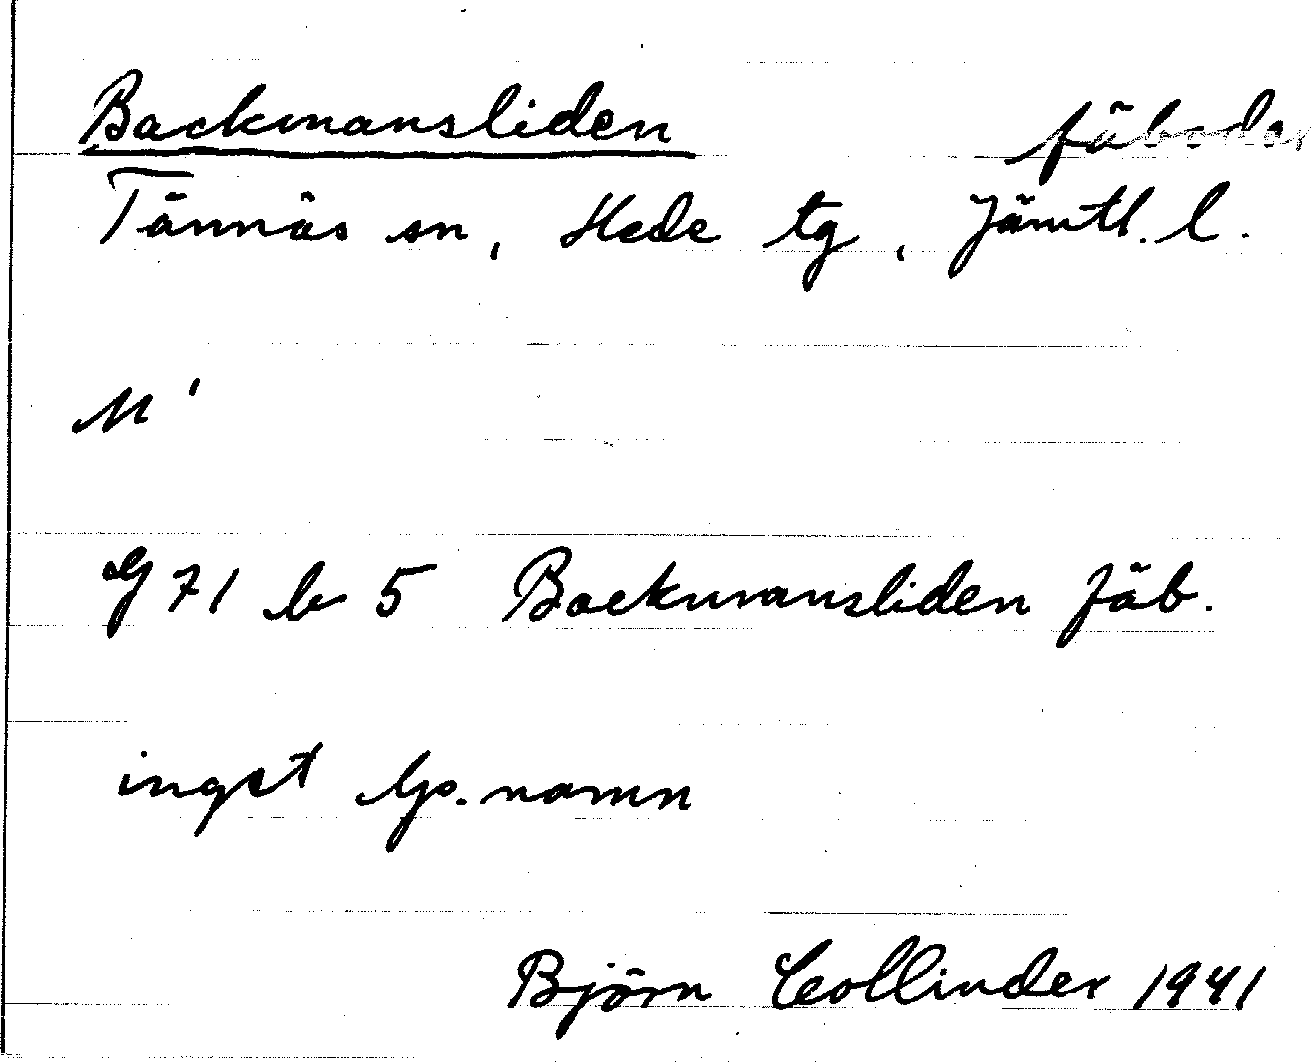 Backmansliden fäbodar
Tännäs sn, Hede tg, Jämtl. l.
M '
G 71 b 5 Backmansliden fäb.
inget lp. namn
Björn Collinder 1941